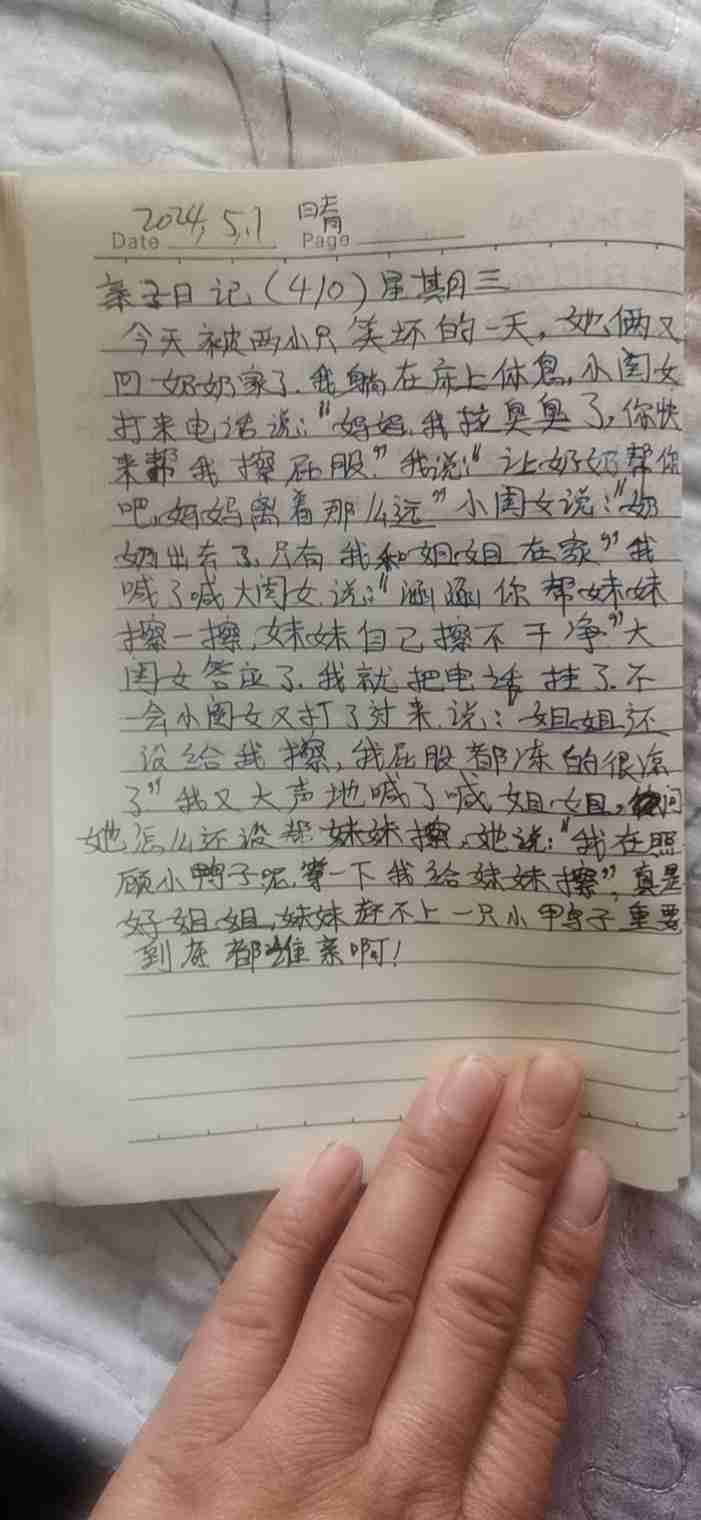 Date 2024.5.1 Page 晴
亲子日记(410)星期三
今天被两小只笑坏的一天,她俩又
回奶奶家了.我躺在床上休息,小闺女
打来电话说:"妈妈,我拉臭臭了,你快
来帮我擦屁股."我说:"让奶奶帮你
吧,妈妈离着那么远"小闺女说:"奶
奶出去了,只有我和姐姐在家"我
喊了喊大闺女.说:"涵涵你帮妹妹
擦一擦,妹妹自己擦不干净."大
闺女答应了.我就把电话挂了.不
一会小闺女又打了过来.说:"姐姐还
没给我擦,我屁股都冻的很凉
了"我又大声地喊了喊姐姐,问
她怎么还没帮妹妹擦,她说:"我在照
顾小鸭子呢,等一下我给妹妹擦",真是
好姐姐,妹妹赶不上一只小鸭子重要
到底都谁亲啊!